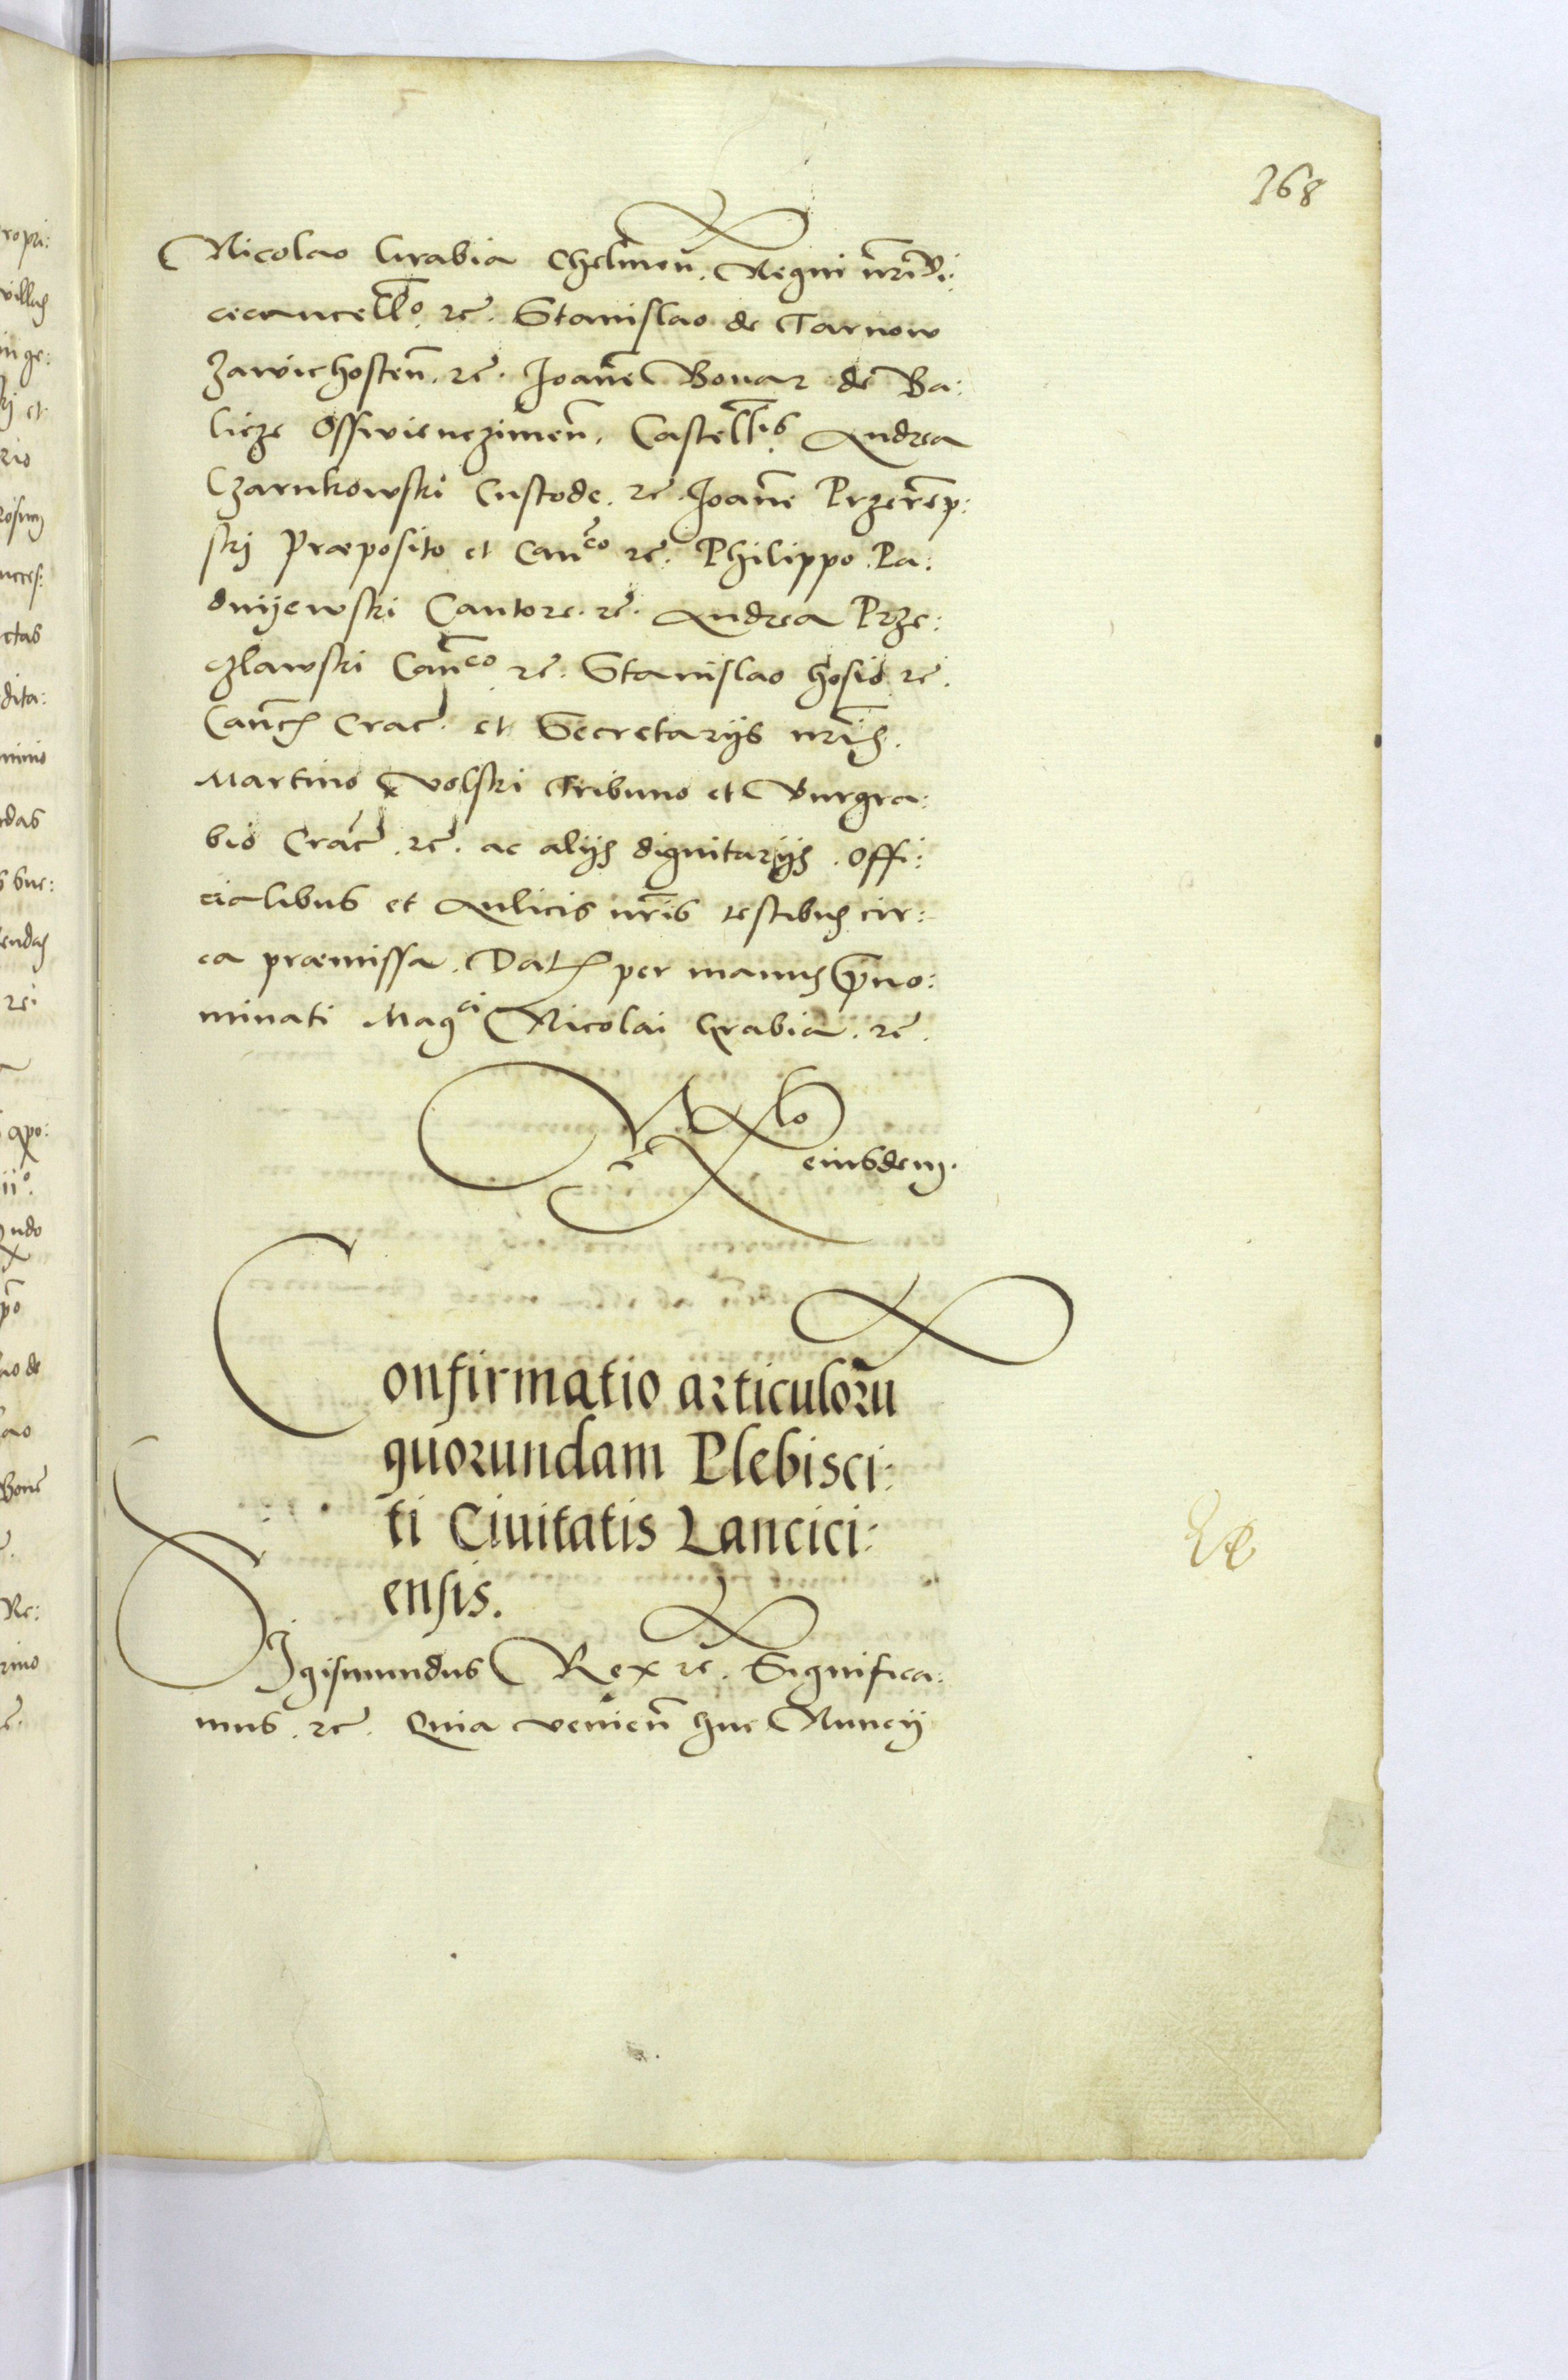 168
Nicolao Grabia Chelmen̄. Regni nr̄i Vi:
cecancellō. rc̄. Stanislao de Tarnow
Zawichosten̄. rc̄. Joan̄e Bonar de Ba:
licze Osswienczimen̄. Castell̄is. Andrea
Czarnkowski Custode. rc̄. Joan̄e Przeremp:
ski Præposito et Can̄co rc̄. Philippo Pa:
dnijewski Cantore. rc̄. Andrea Prze:
czlawski Can̄co rc̄. Stanislao Hosio rc̄.
Canc̄s Crac̄. et Secretarijs nr̄is.
Martino Volski Tribuno et Burgra:
bio Crac̄. rc̄. ac alijs dignitarijs. offi:
cialibus et Aulicis nr̄is testibus cir:
ca præmissa. Dat̄ per manus p̄no:
minati Maḡci Nicolai Grabia. rc̄.
Rlo
eiusdem.
Confirmatio articulorū
quorundam Plebisci:
ti Ciuitatis Lancici:
ensis.
Sigismundus Rex rc̄. Significa:
mus. rc̄. Quia venien̄ huc Nuncij